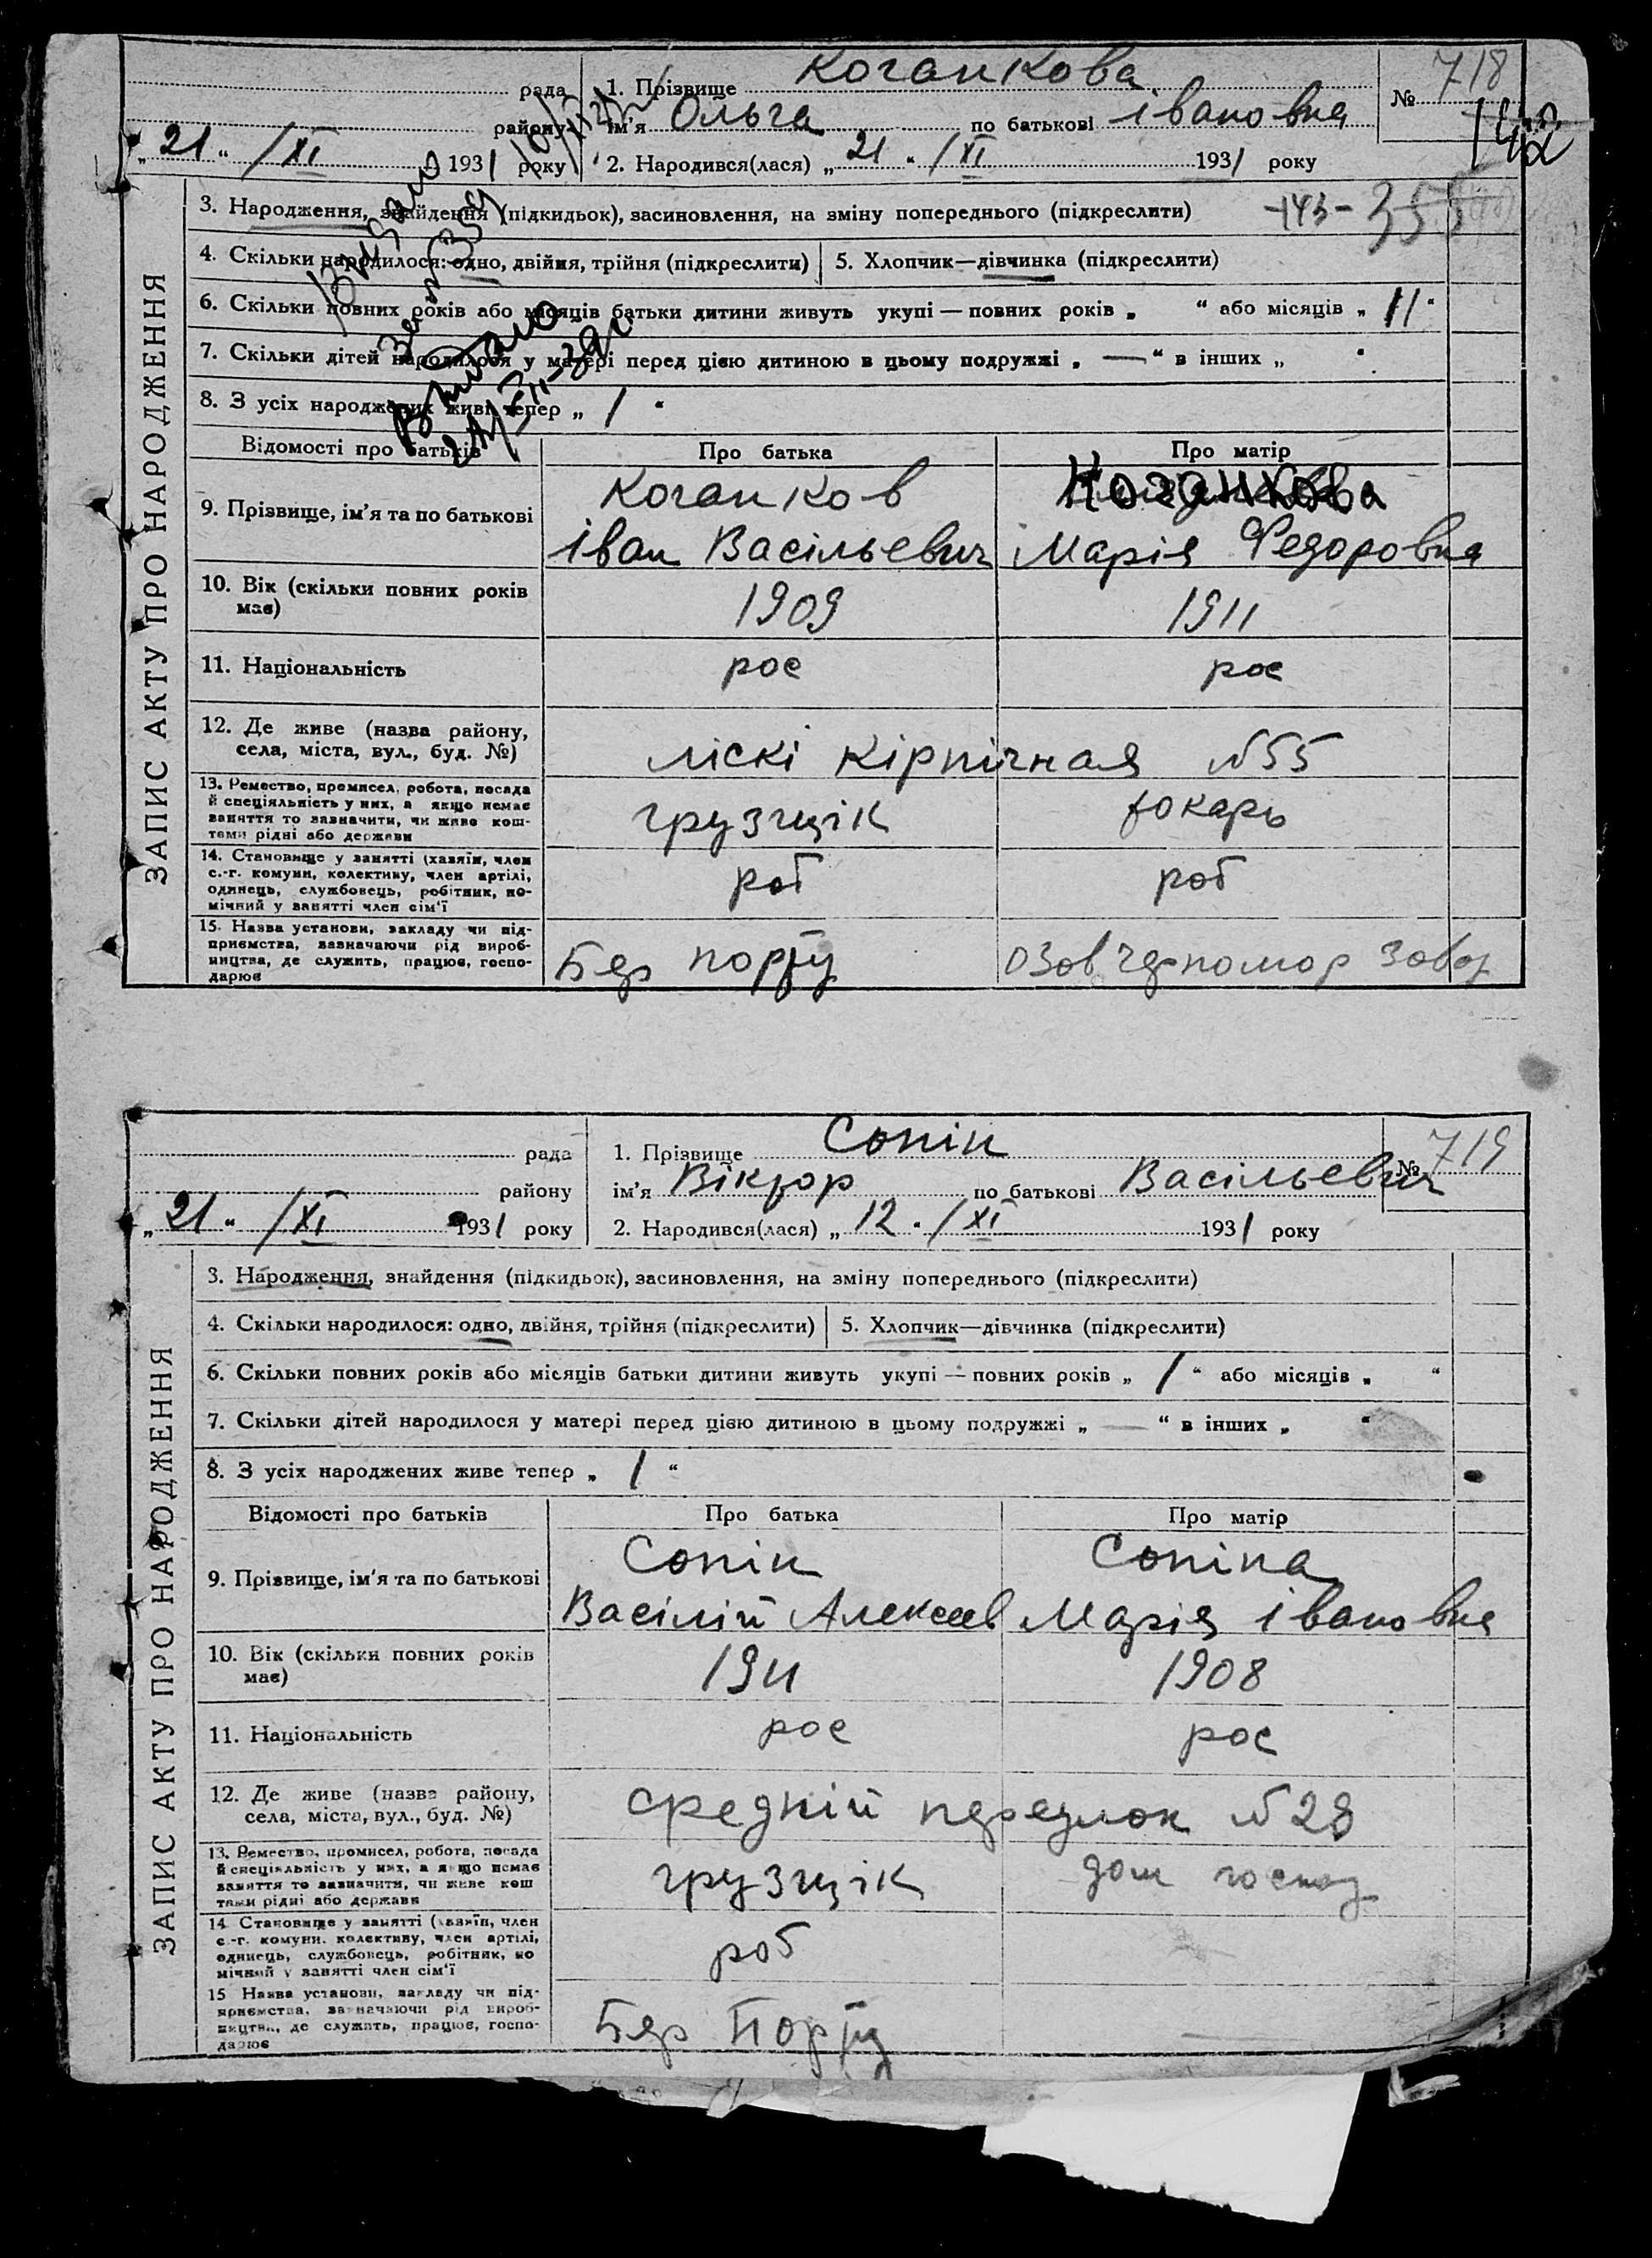 рада 1. Прізвище Коганкова № 718
району ім'я Ольга по батькові івановна 142
„ 21 “ /XI 1931 року 2. Народився(лася) „ 21 “ /XI 1931 року
ЗАПИС АКТУ ПРО НАРОДЖЕННЯ
3. Народження, знайдення (підкидьок), засиновлення, на зміну попереднього (підкреслити) -143-
4. Скільки народилося: одно, двійня, трійня (підкреслити) 5. Хлопчик—дівчинка (підкреслити)
6. Скільки повних років або місяців батьки дитини живуть укупі — повних років „ “ або місяців „ 11 “
7. Скільки дітей народилося у матері перед цією дитиною в цьому подружжі „ — “ в інших „ “
8. З усіх народжених живе тепер „ 1 “
Відомості про батьків Про батька Про матір
9. Прізвище, ім'я та по батькові Коганков Коганкова
іван Васільевич Марія Федоровна
10. Вік (скільки повних років має) 1909 1911
11. Національність рос рос
12. Де живе (назва району, села, міста, вул., буд. №) ліскі кірпічная №55
13. Ремество, промисел, робота, посада й спеціяльність у них, а якщо немає заняття то зазначити, чи живе коштами рідні або держави грузчцік токарь
14. Становище у занятті (хазяїн, член с.-г. комуни, колективу, член артілі, одинець, службовець, робітник, помічний у занятті член сім'ї роб роб
15. Назва установи, закладу чи підприємства, зазначаючи рід виробництва, де служить, працює, господарює Бер порту
рада 1. Прізвище Сопін № 719
району ім'я Віктор по батькові Васільевич
„ 21 “ /XI 1931 року 2. Народився(лася) „ 12 “ /XI 1931 року
ЗАПИС АКТУ ПРО НАРОДЖЕННЯ
3. Народження, знайдення (підкидьок), засиновлення, на зміну попереднього (підкреслити)
4. Скільки народилося: одно, двійня, трійня (підкреслити) 5. Хлопчик—дівчинка (підкреслити)
6. Скільки повних років або місяців батьки дитини живуть укупі — повних років „ 1 “ або місяців „ “
7. Скільки дітей народилося у матері перед цією дитиною в цьому подружжі „ — “ в інших „ “
8. З усіх народжених живе тепер „ 1 “
Відомості про батьків Про батька Про матір
9. Прізвище, ім'я та по батькові Сопін Сопіна
Васілій Алексеев Марія івановна
10. Вік (скільки повних років має) 1911 1908
11. Національність рос рос
12. Де живе (назва району, села, міста, вул., буд. №) средній переулок №28
13. Ремество, промисел, робота, посада й спеціяльність у них, а якщо немає заняття то зазначити, чи живе коштами рідні або держави грузчцік дом господ
14. Становище у занятті (хазяїн, член с.-г. комуни, колективу, член артілі, одинець, службовець, робітник, помічний у занятті член сім'ї роб
15 Назва установи, закладу чи підприємства, зазначаючи рід виробництва, де служить, працює, господарює Бер Порту